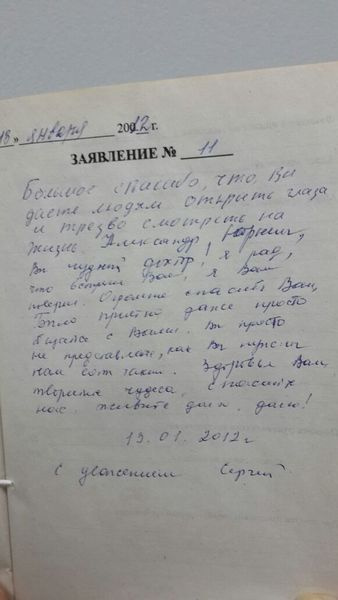 18 » января 20012 г.
ЗАЯВЛЕНИЕ № 11
Большое спасибо, что Вы
даете людям открыть глаза
и трезво смотреть на
жизнь. Александр
Вы чудный доктор! Я рад,
что встретил Вас, я Вам
поверил. Огромное спасибо Вам,
Было приятно даже просто
общаться с Вами. Вы просто
не представляете, как Вы
нам Здоровья Вам,
творите чудеса, спасайте
нас, живите долго, долго!
13.01.2012 г
С уважением Сергей